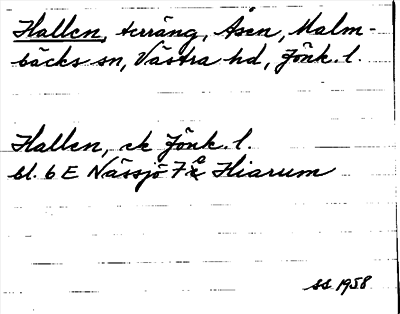 Hallen, terräng, Åsen, Malm-
bäcks sn, Västra hd, Jönk. l.
Hallen, ek Jönk. l.
bl. 6 E Nässjö 7 Hiarum
SS 1958